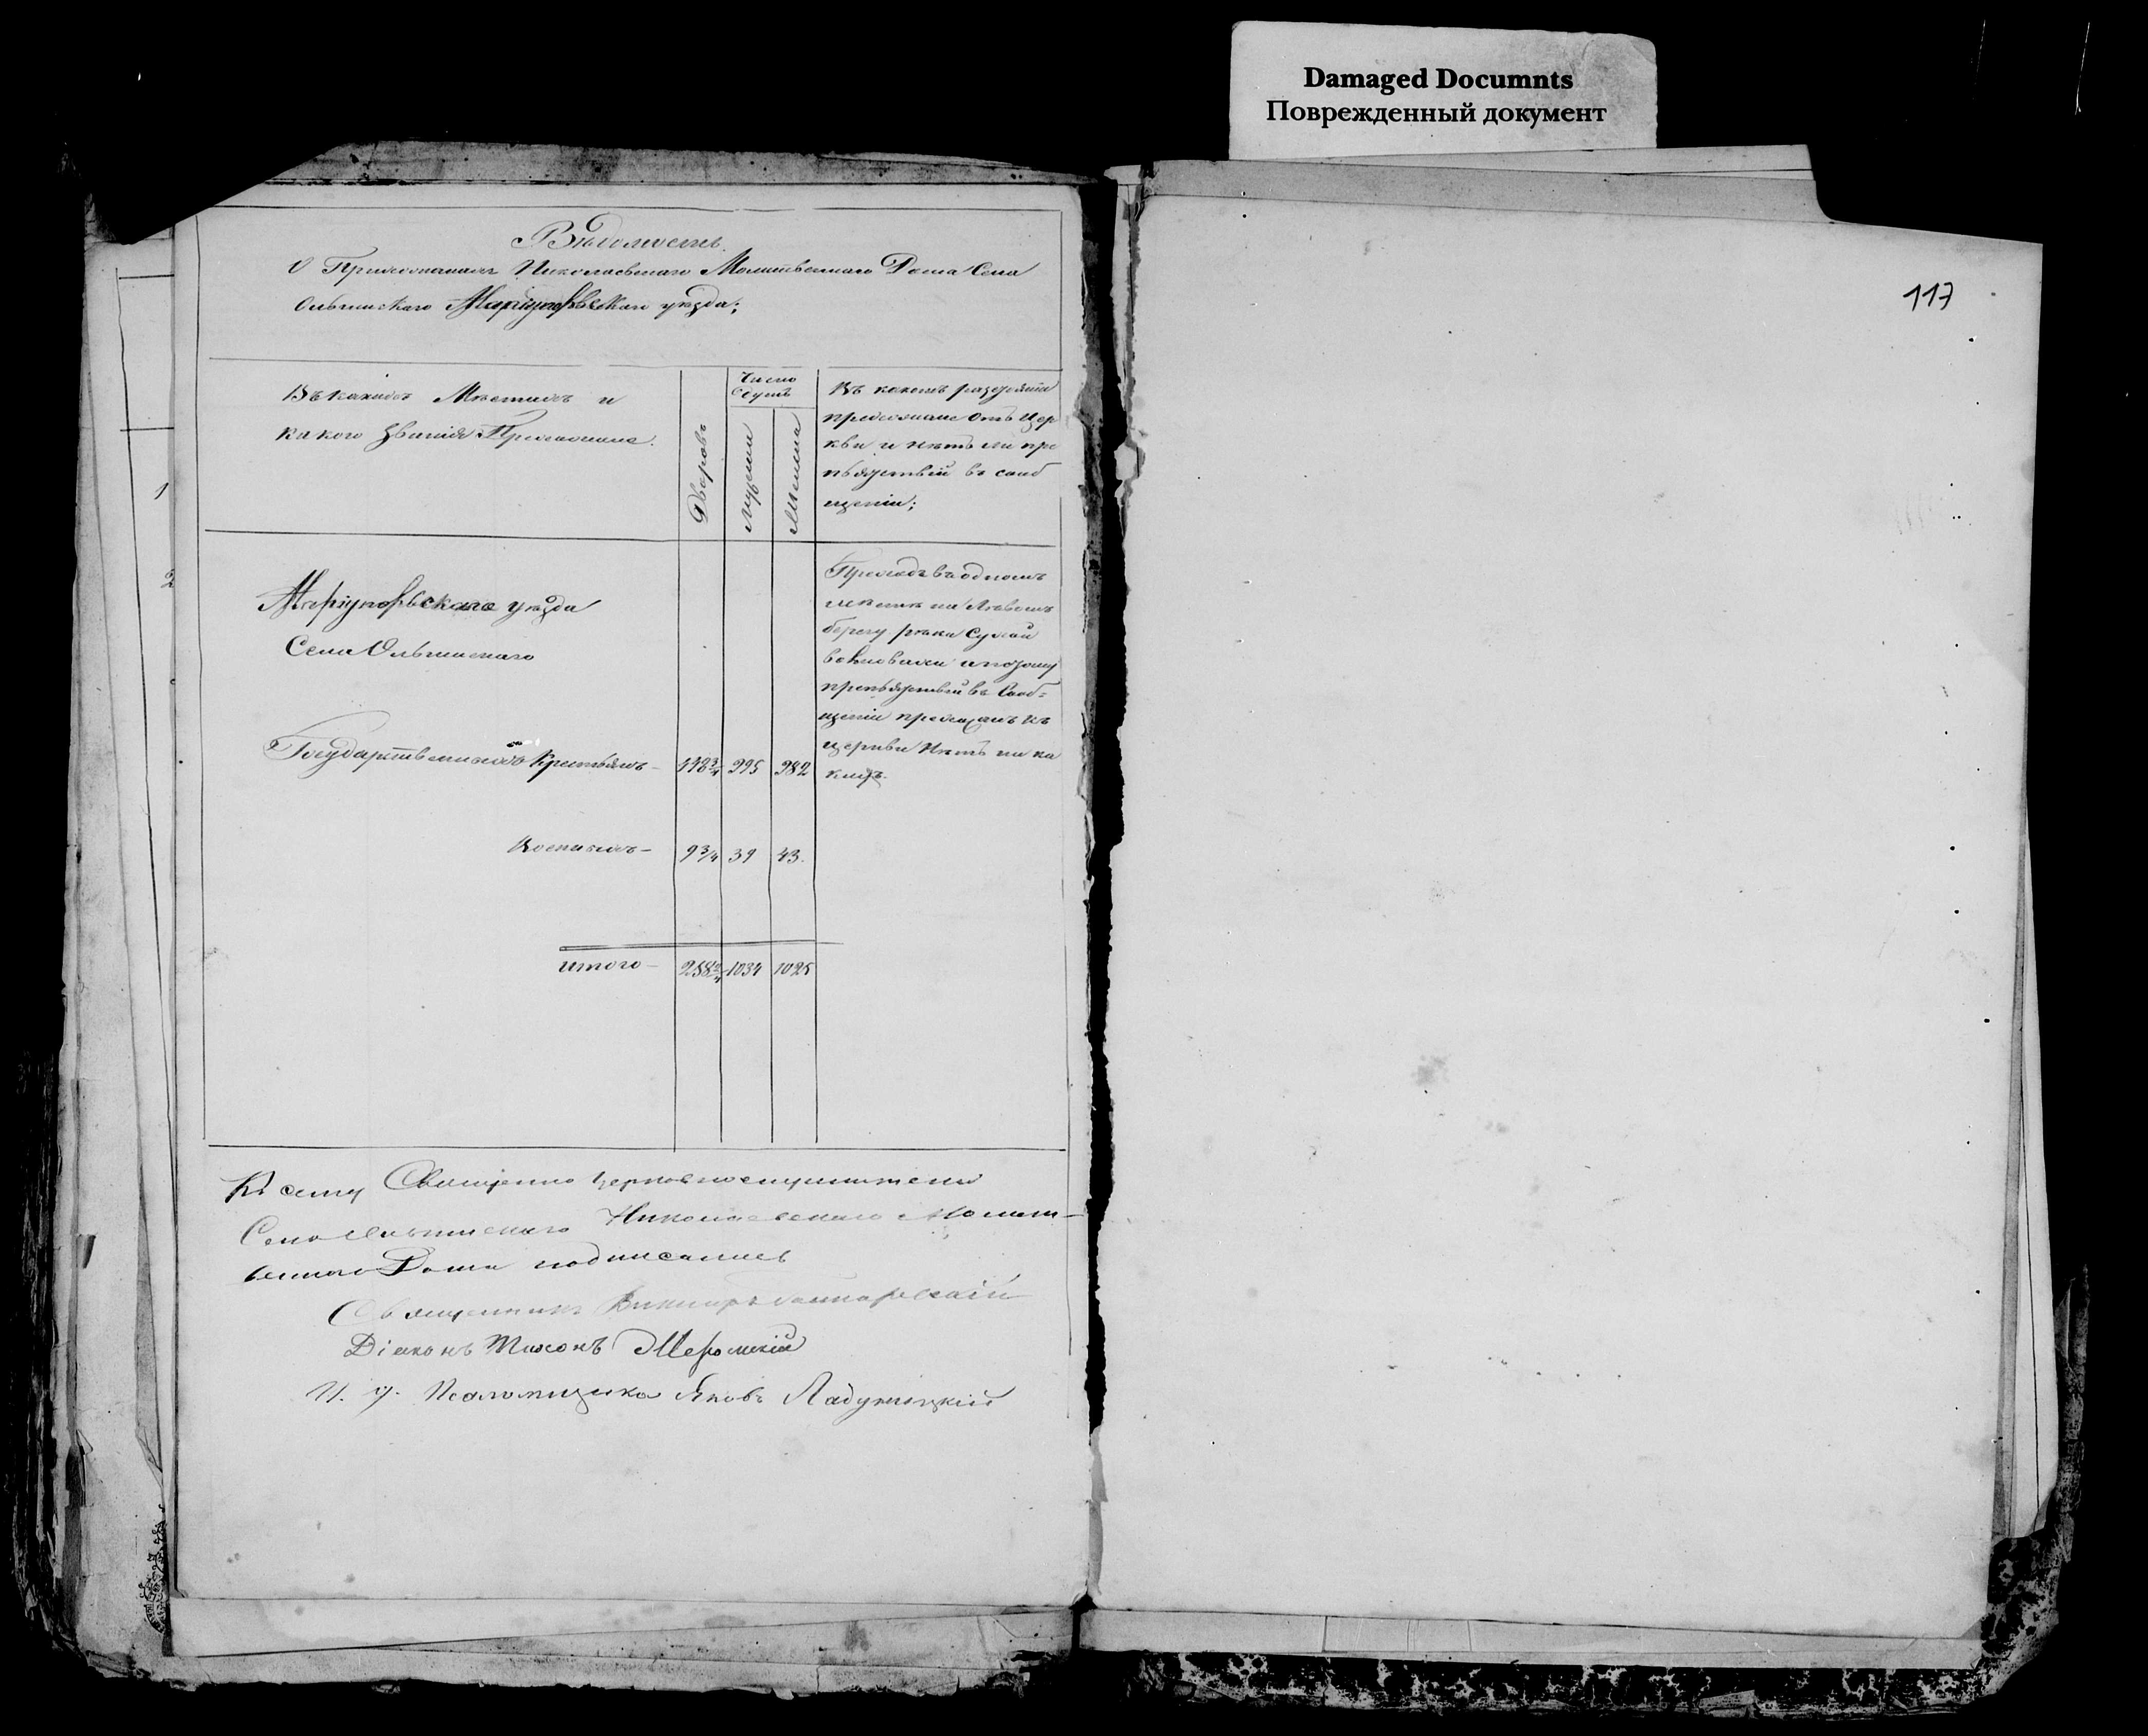 Damaged Documnts
Поврежденный документ
117
Вѣдомость
О Прихожанахъ Николаевскаго Молитвеннаго Дома Села
Ольгинскаго Маріупольскаго уѣзда;
Въ какихъ Мѣстахъ и
какого званія Прихожане.
Дворовъ
Число
душъ
Мужеска
Женска
Въ какомъ разстояніи
прихожане отъ Цер
кви и нѣтъ ли пре
пятствій въ сооб
щеніи;
1
2
Маріупольскаго уѣзда
Села Ольгинскаго
Приходъ въ одномъ
мѣстѣ на Лѣвомъ
берегу рѣки Сухой
Волновахи и потому
препятствій въ Сооб=
щеніи прихожанъ къ
церкви Нѣтъ ни ка
кихъ.
Государственныхъ Крестьянъ - 995 982
Военныхъ - 9 3/4 39 43.
Итого - 258 2/4 1034 1025
Къ сему Священно церковнослужители
Села Ольгинскаго Николаевскаго Молит-
веннаго Дома подписались
Священникъ
Діаконъ Тихонъ
И. д. Псаломщика Яковъ Ладухицкій